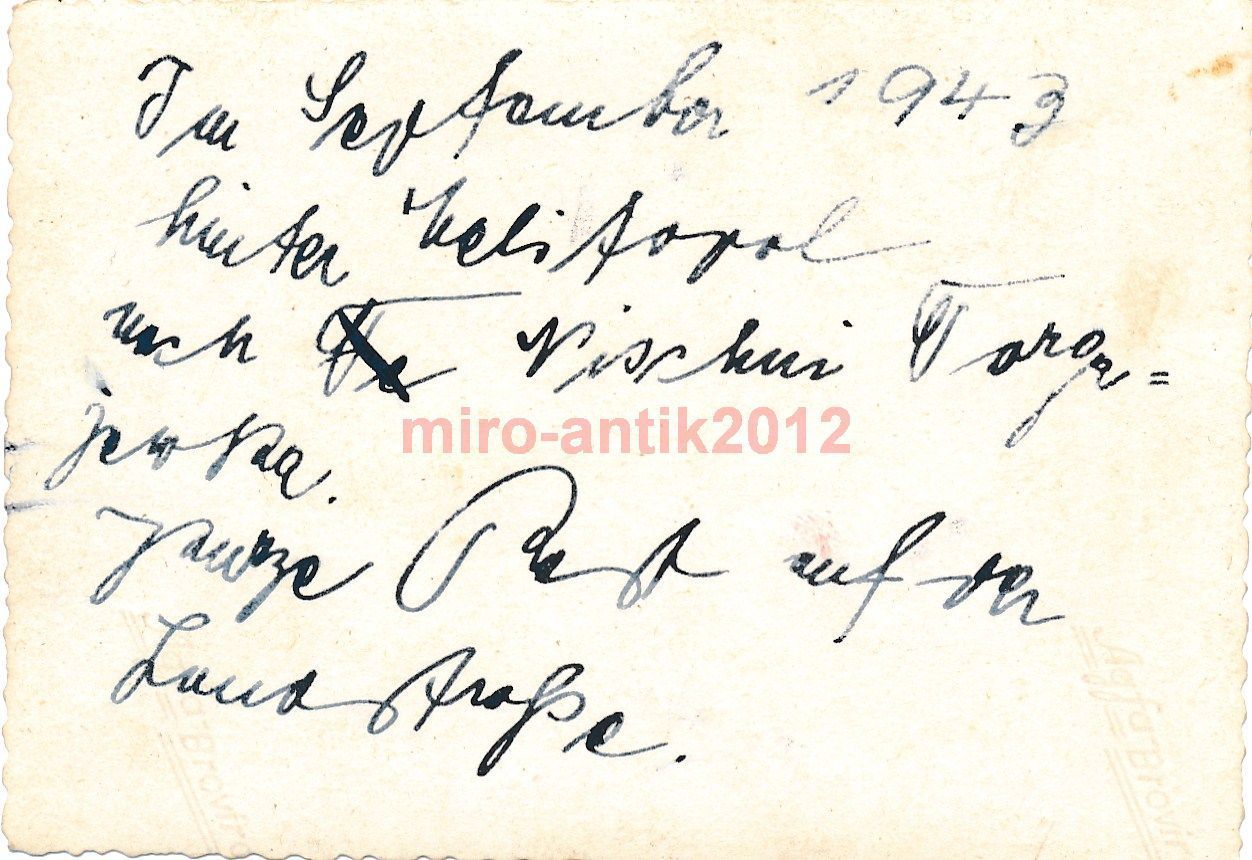 Im September 1943
hinter Melitopol
nach Te Nischni Torga=
jewka.
Kurze Rast auf der
Landstraße.
miro-antik2012
Agfa Brovira